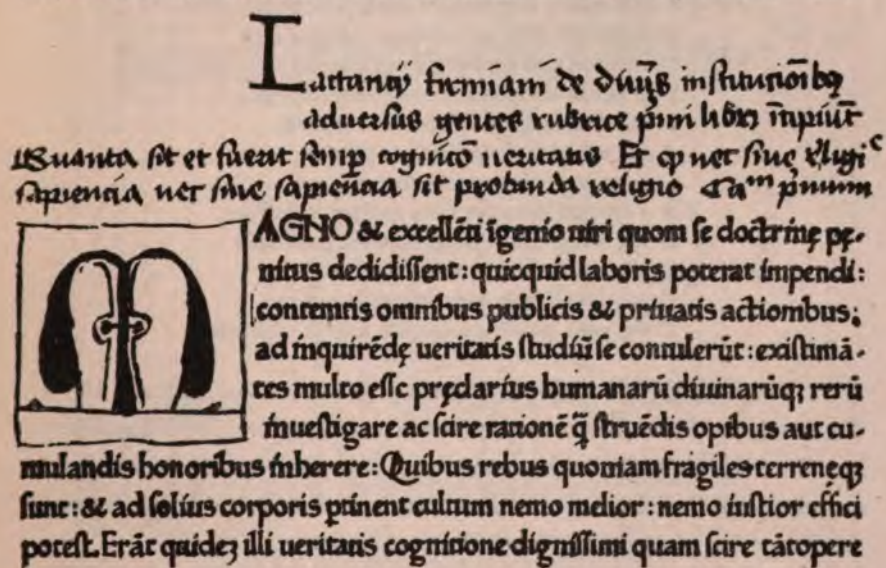 Lactantij firmiani de diuinis institucionibꝫ
aduersus gentes rubrice p̃mi libri ĩcipiũt
Quanta sit et fuerit semꝑ cognicõ ueritatis Et ꝙ nec sine religiᵉ
sapiencia nec sine sapiencia sit probanda religio Caᵐ p̃mum
MAGNO & excellẽti ĩgenio uiri quom se doctrinę pę-
nitus dedidissent: quicquid laboris poterat impendi:
contemtis omnibus publicis & priuatis actionibus;
ad inquirẽdę ueritatis studiũ se contulerũt: existimã-
tes multo esse pręclarius humanarũ diuinarũqꝫ rerũ
inuestigare ac scire rationẽ q̃ struẽdis opibus aut cu-
mulandis honoribus inherere: Quibus rebus quoniam fragiles terrenęqꝫ
sunt: & ad solius corporis ꝑtinent cultum nemo melior: nemo iustior effici
potest. Erãt quideꝫ illi ueritatis cognitione dignissimi quam scire tãtopere